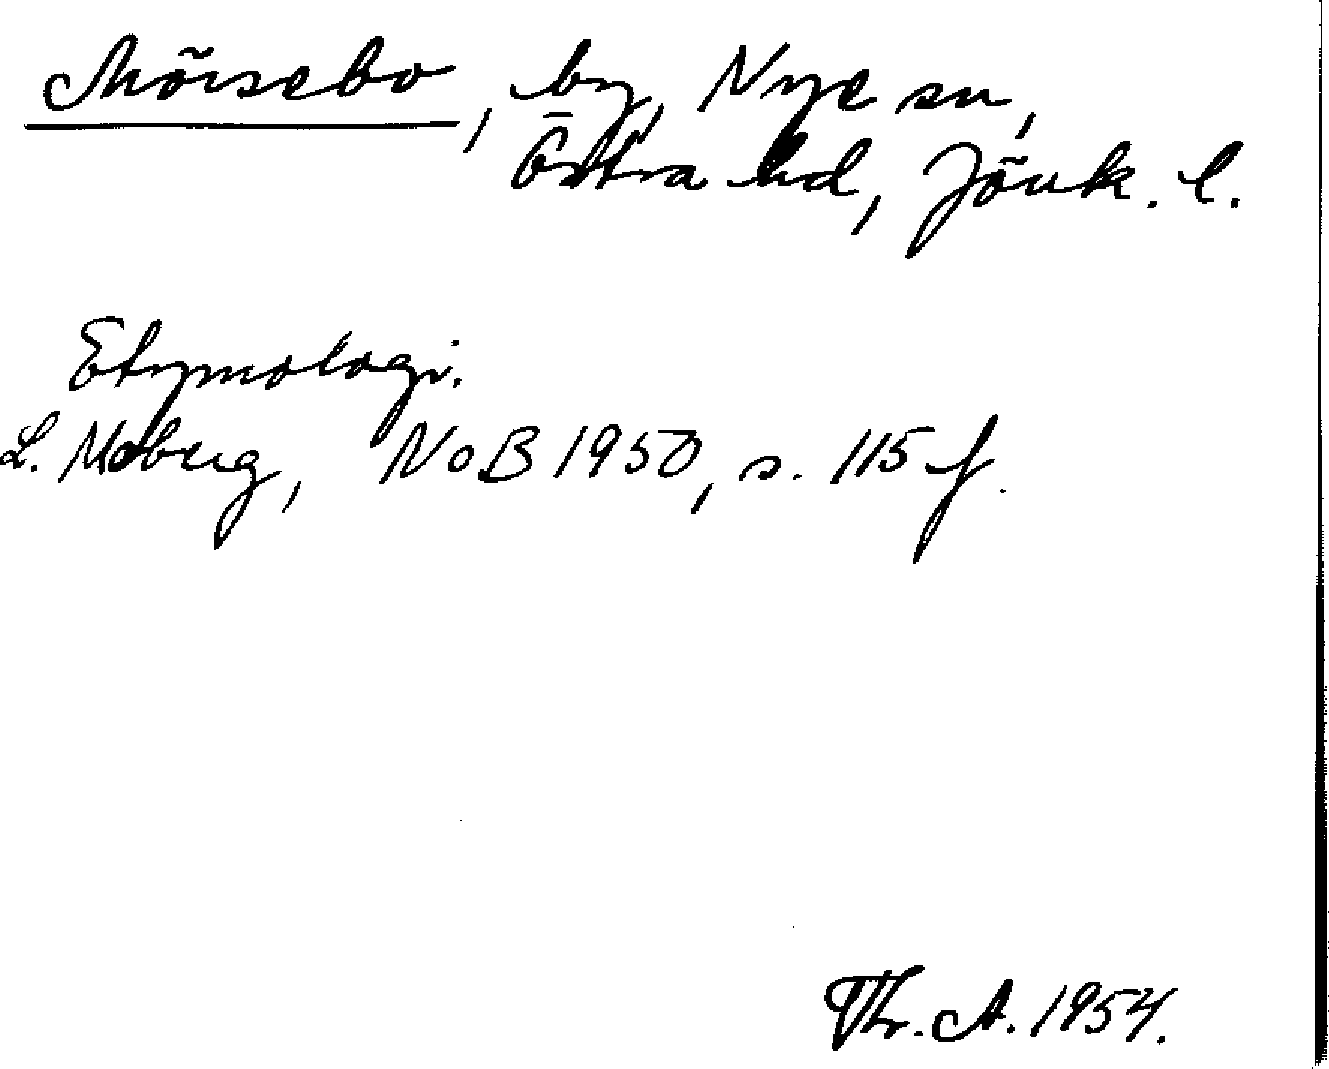 Mörsebo, by, Nye sn,
Östra hd, Jönk. l.
Etymologi.
L. Moberg, NoB 1950, s. 115 f.
Th. A. 1954.